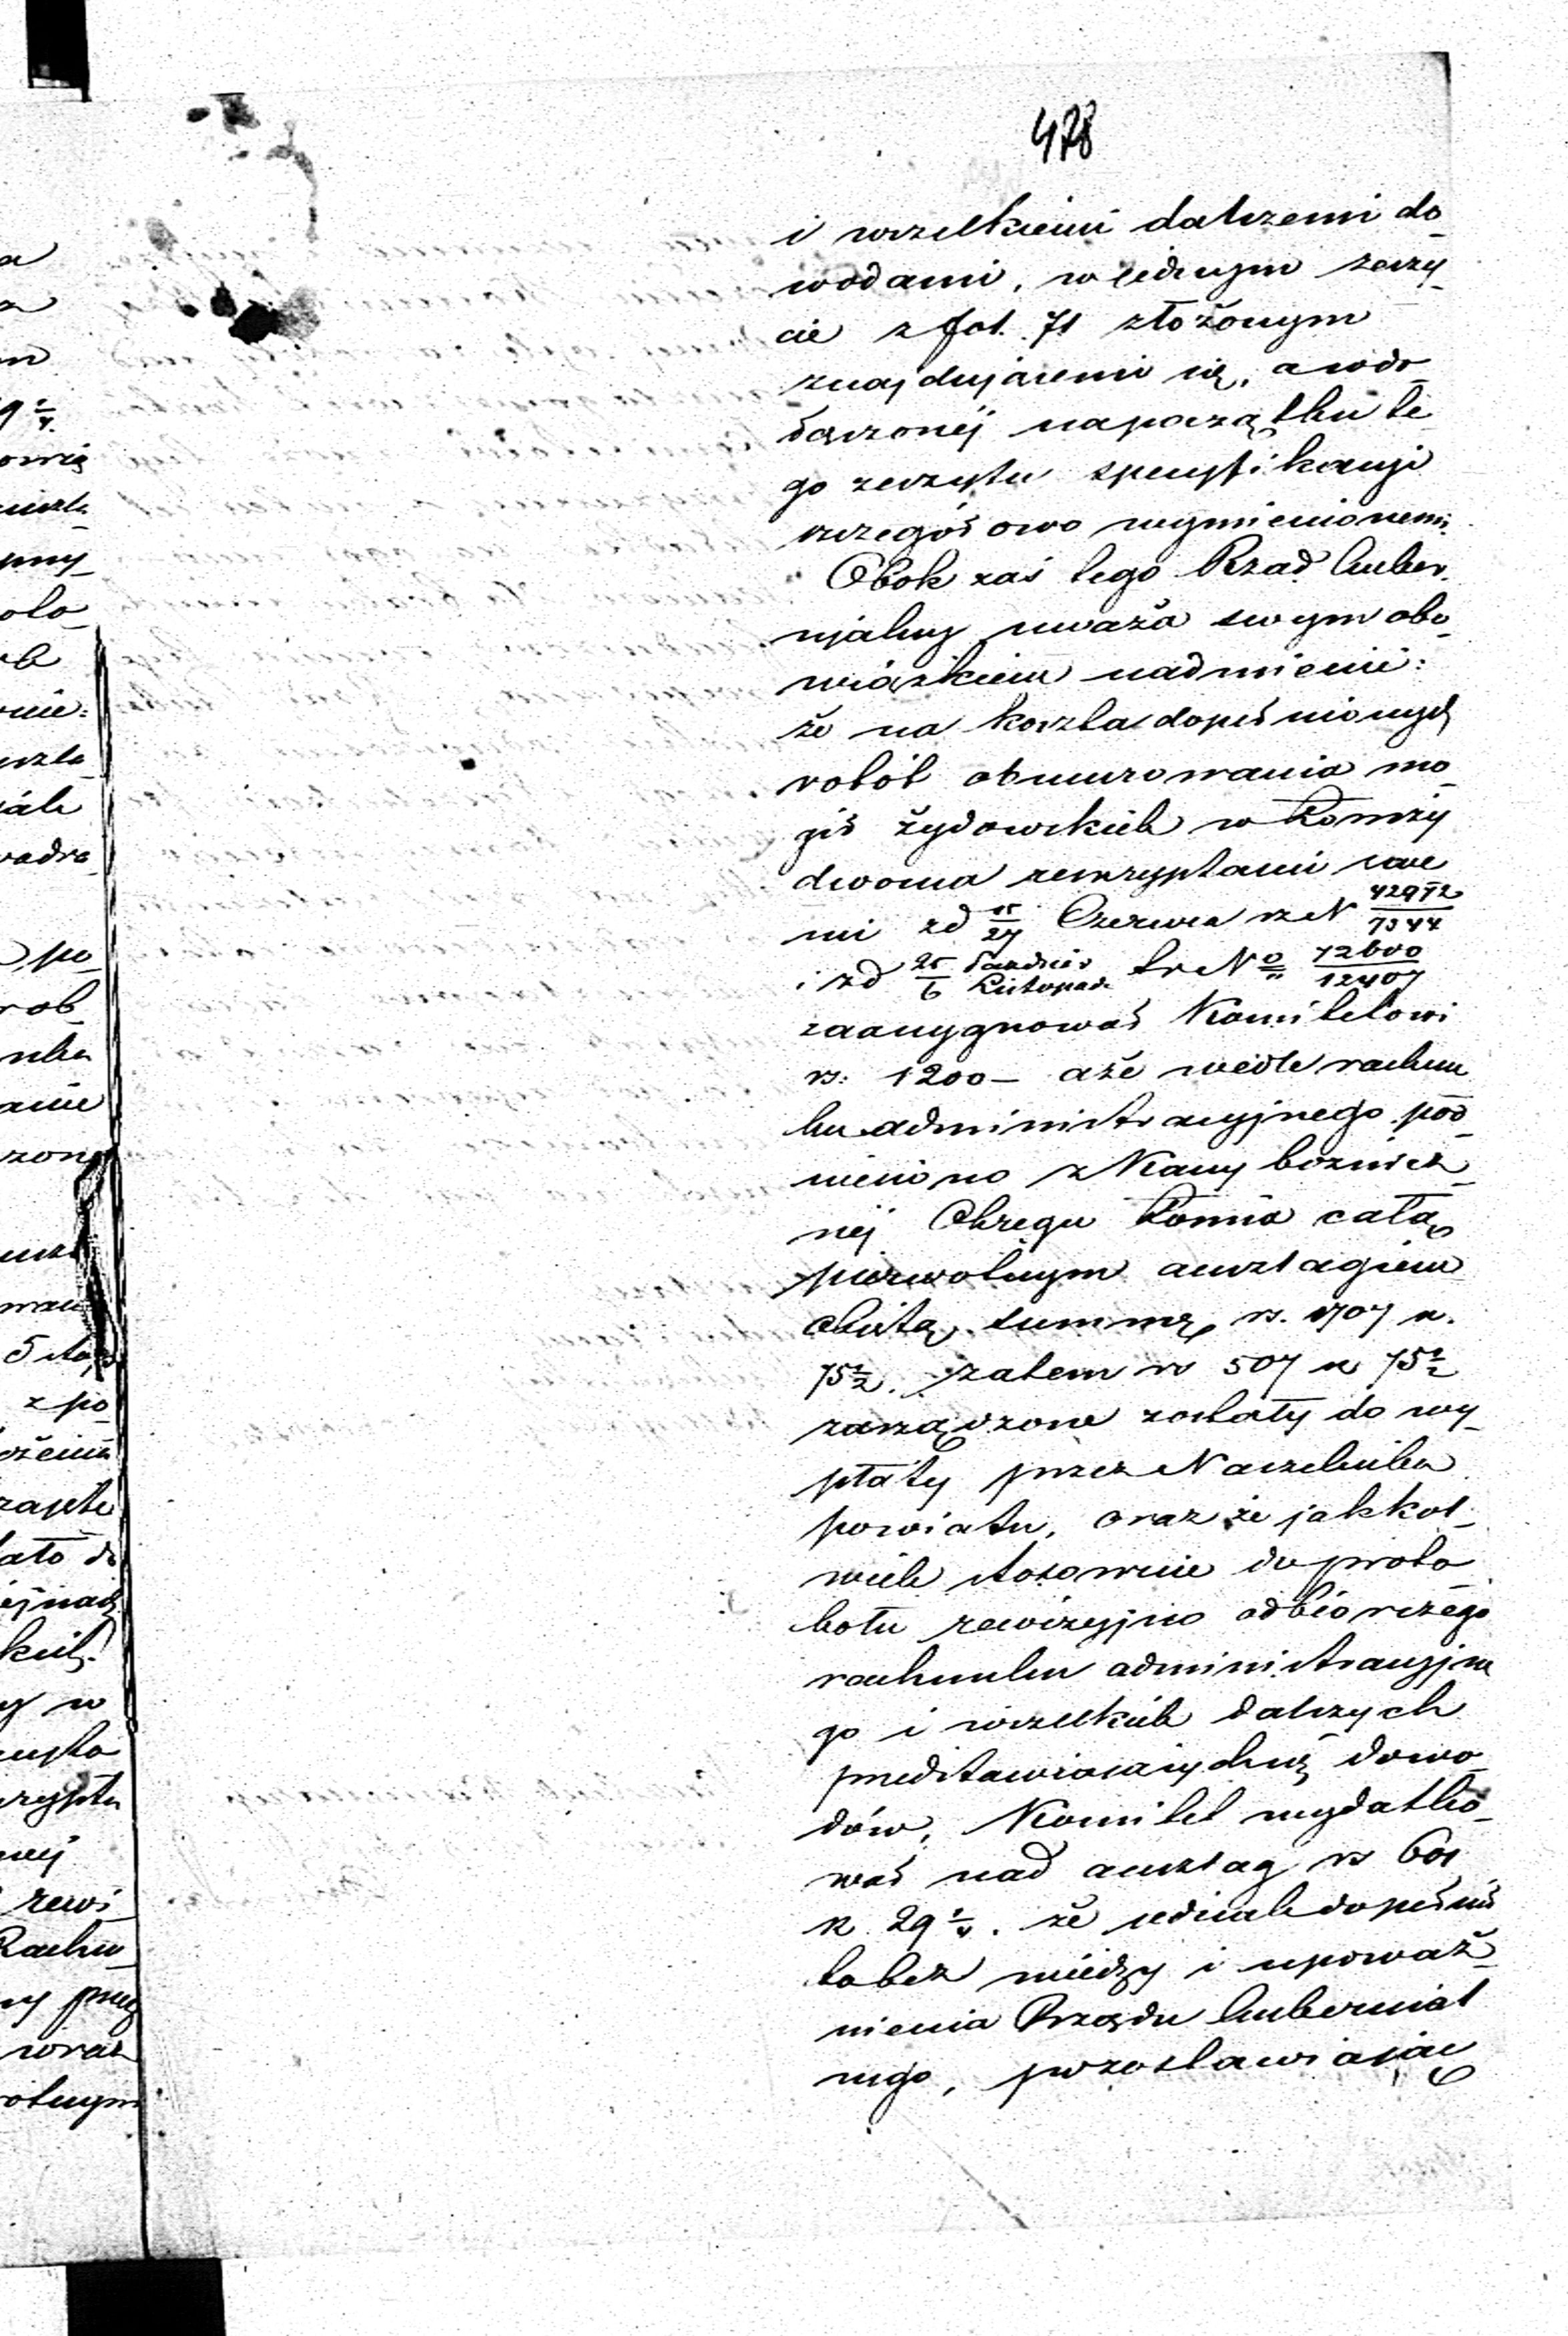 478
i wszelkiemi dalszemi do-
wodami, w jednym zeszy-
cie z fol. 71 złożonym
znajdującemi się, a wdo-
łączonéj napoczątku te
go zeszytu specyfikacyi
szczegółowo wymienionemi.
Obok zaś tego Rząd Guber-
njalny uważa swym obo-
wiązkiem nadmienić:
że na koszta dopełnionych
robót obmurowania mo-
gił żydowskich w Łomży
dwoma reskryptami swe
mi z d 15/27 Czerwca rz N 42972/7544
i z d 25 Paździer/6 Listopad t. r. No 72600/12407
zaasygnował Komitetowi
rs: 1200 – a że wedle rachun
ku administracyjnego pod-
niesiono z Kassy boźnicz-
néj Okręgu Łomża całą
pierwotnym anszlagiem
objętą summę rs. 1707 k.
75½. zatem rs 507 k 75½
zarządzone zostały do wy-
płaty przez Naczelnika
powiatu, oraz że jakkol-
wiek stosownie do proto-
kołu rewizyjno odbiorczego
rachunku administracyjne
go i wszelkich dalszych
przedstawiających się dowo-
dów, Komitet wydatko-
wał nad anszlag rs 601
k 29¼. że jednak dopełnił
to bez wiedzy i upoważ-
nienia Rządu Gubernial
nego, pozostawiając